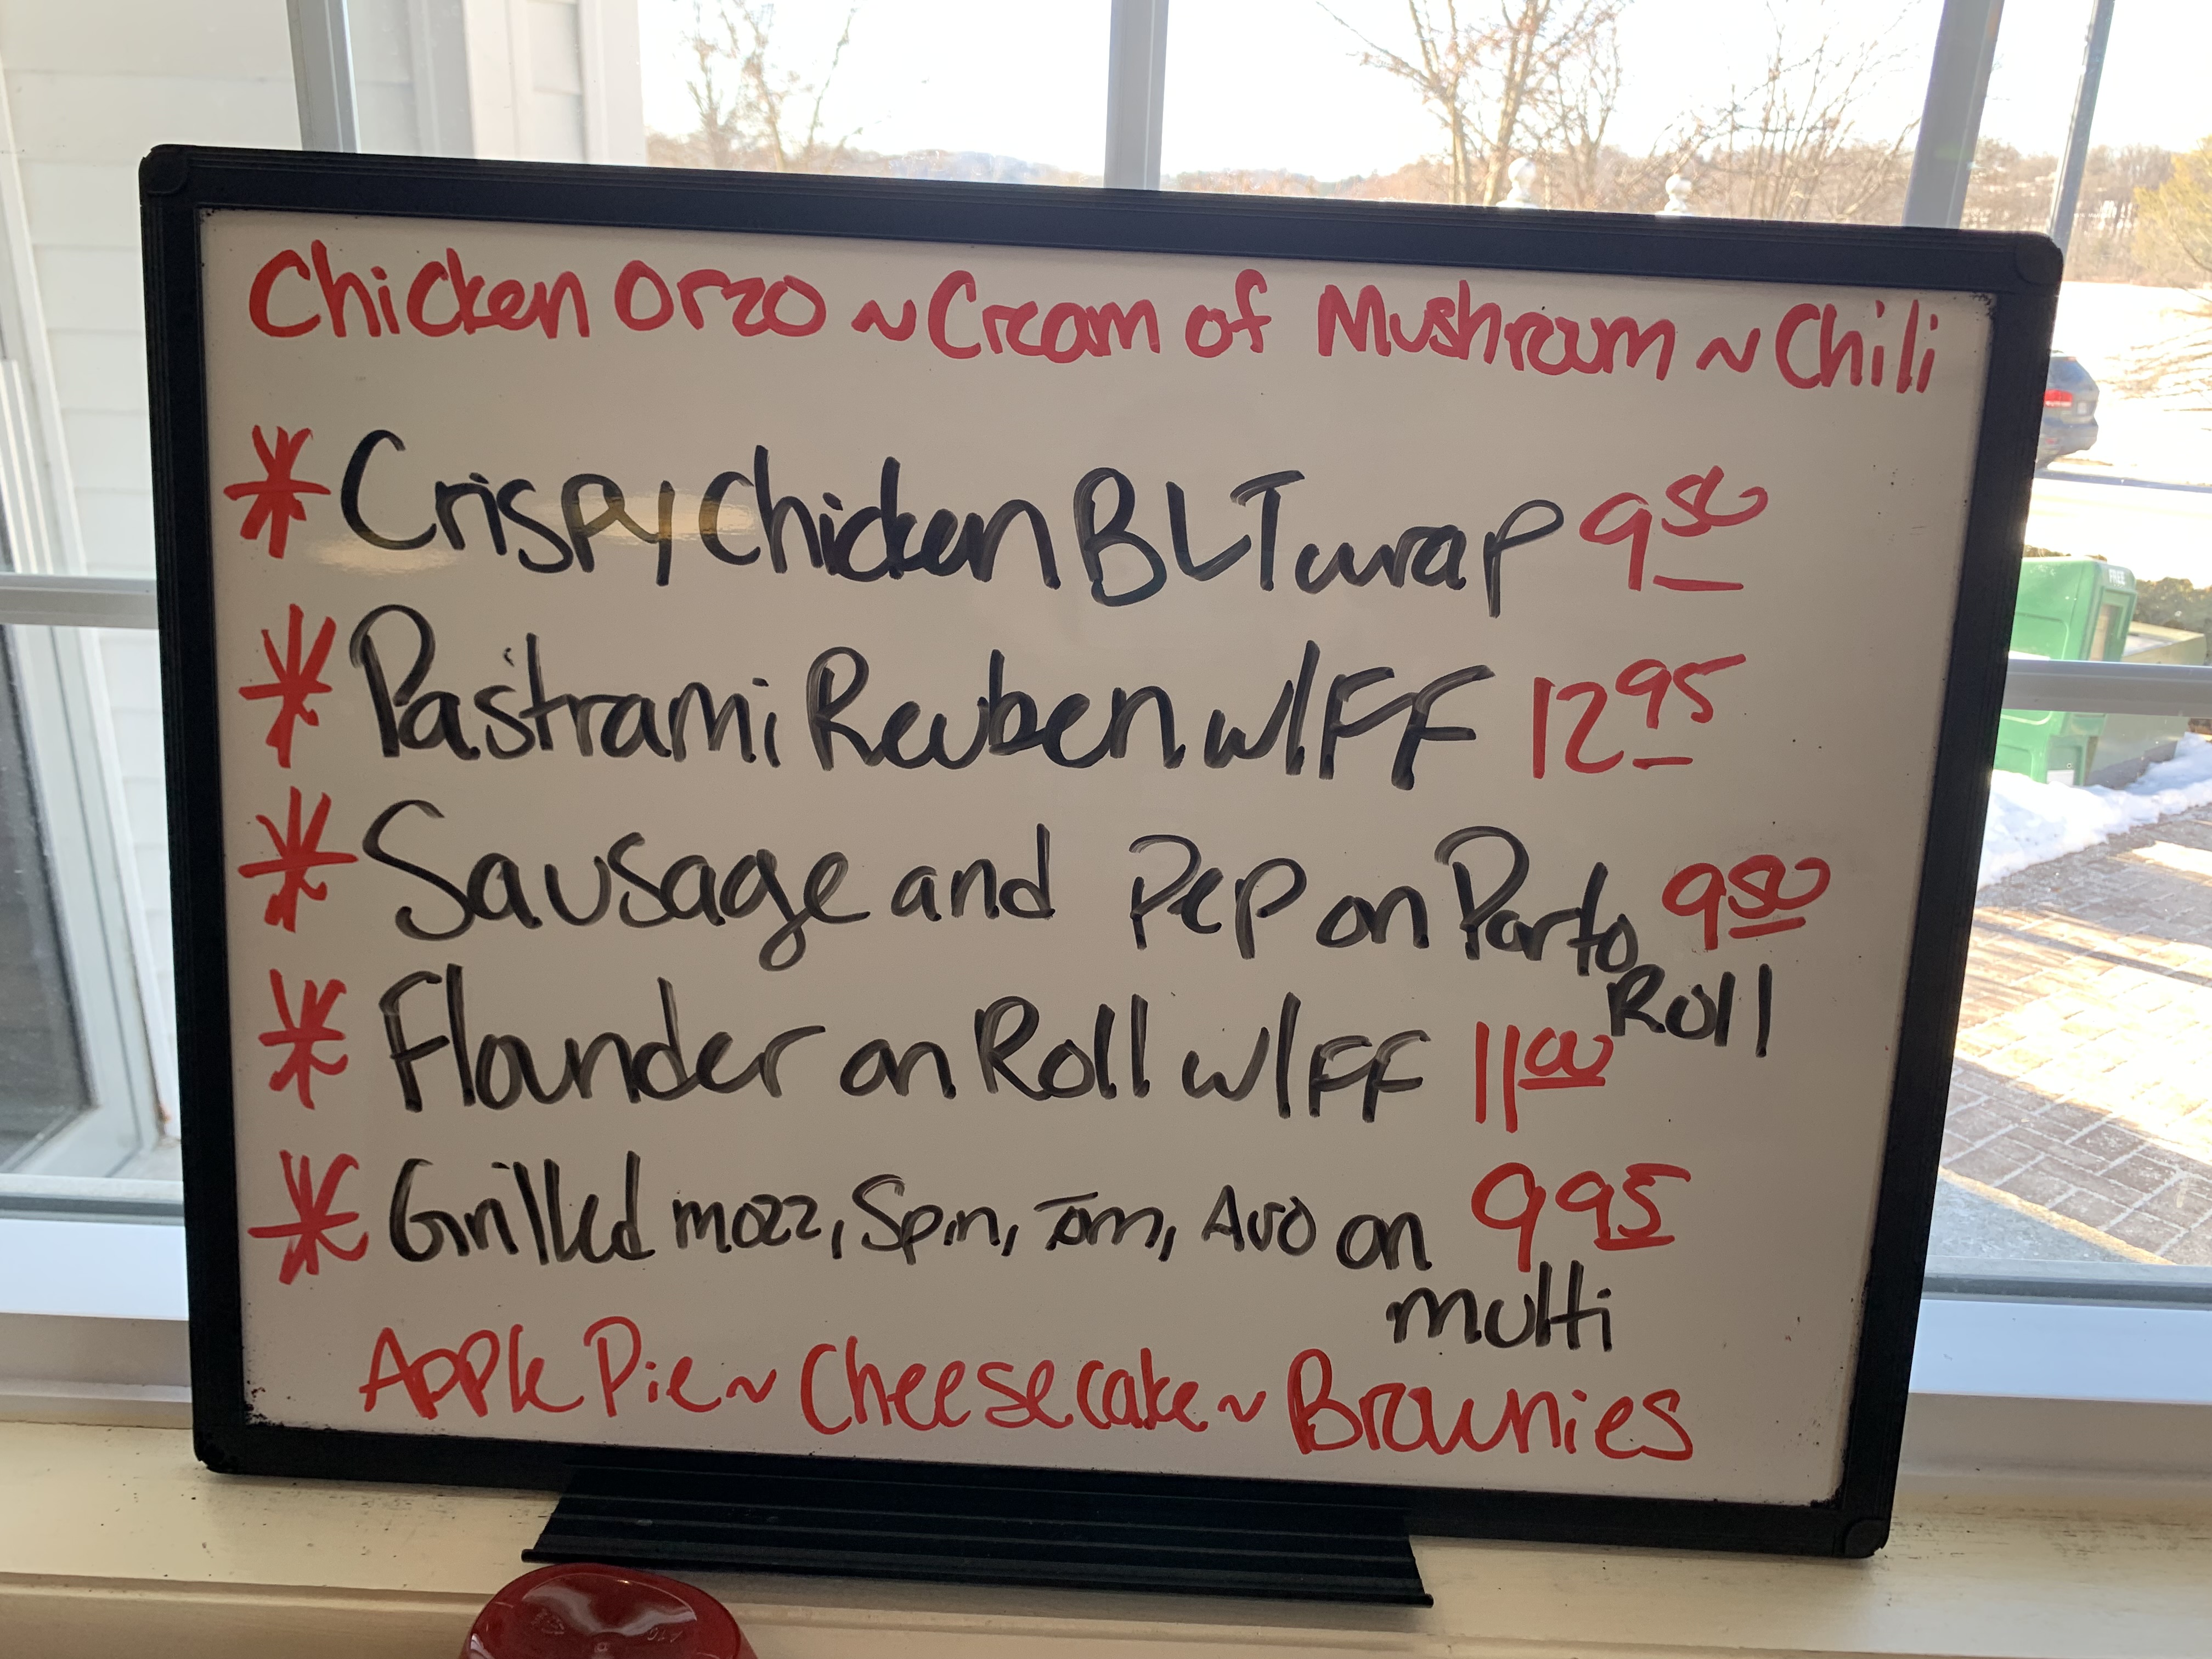 Chicken Orzo ~ Cream of Mushroom ~ Chili
* Crispy Chicken BLT wrap 9 50
* Pastrami Reuben w/FF 12 95
* Sausage and Pep on Porto 9 50
Roll
* Flounder on Roll w/FF 11 00
* Grilled mozz, Spin, Tom, Avo on 9 95
multi
Apple Pie ~ Cheesecake ~ Brownies
FREE